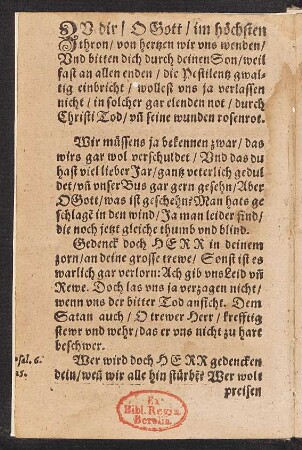 ZV dir / O Gott / im höchsten
Thron / von hertzen wir vns wenden /
Vnd bitten dich durch deinen Son / weil
fast an allen enden / die Pestilentz gwal-
tig einbricht / wollest vns ja verlassen
nicht / in solcher gar elenden not / durch
Christi Tod / vñ seine wunden rosenrot.
Wir müssens ja bekennen zwar / das
wirs gar wol verschuldet / Vnd das du
hast viel lieber Jar / gantz veterlich gedul
det / vñ vnser Bus gar gern gesehn / Aber
O Gott / was ist geschehn? Man hats ge
schlagẽ in den wind / Ja man leider find /
die noch jetzt gleiche thumb vnd blind.
Gedenck doch HERR in deinem
zorn / an deine grosse trewe / Sonst ist es
warlich gar verlorn: Ach gib vns Leid vñ
Rewe. Doch las vns ja verzagen nicht /
wenn vns der bitter Tod anficht. Dem
Satan auch / O trewer Herr / krefftig
stewr vnd wehr / das er vns nicht zu hart
beschwer.
Psal. 6.
Wer wird doch HERR gedencken
dein / weñ wir alle hin stürbẽ? Wer wolt
preisen
Ex
Bibl. Regia
Berolin.